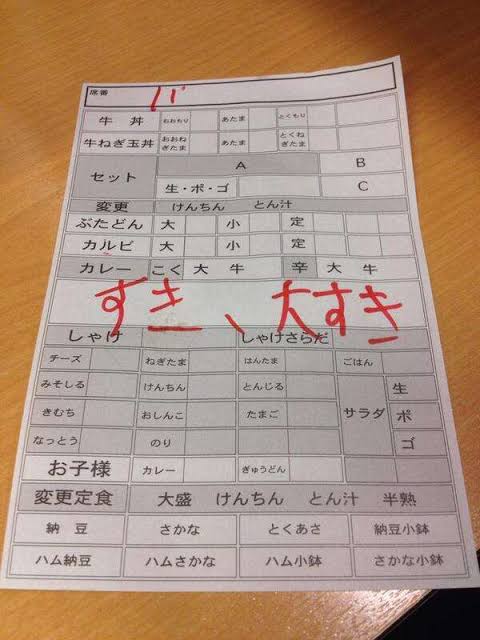 席番
牛丼 おおもり あたま とくもり
牛ねぎ玉丼 おおねぎたま あたま とくねぎたま
セット A B
生・ポ・ゴ C
変更 けんちん とん汁
ぶたどん 大 小 定
カルビ 大 小 定
カレー こく 大 牛 辛 大 牛
すき、大すき
しゃけ しゃけさらだ
チーズ ねぎたま はんたま ごはん
みそしる けんちん とんじる サラダ 生
きむち おしんこ たまご ポ
なっとう のり ゴ
お子様 カレー ぎゅうどん
変更定食 大盛 けんちん とん汁 半熟
納豆 さかな とくあさ 納豆小鉢
ハム納豆 ハムさかな ハム小鉢 さかな小鉢